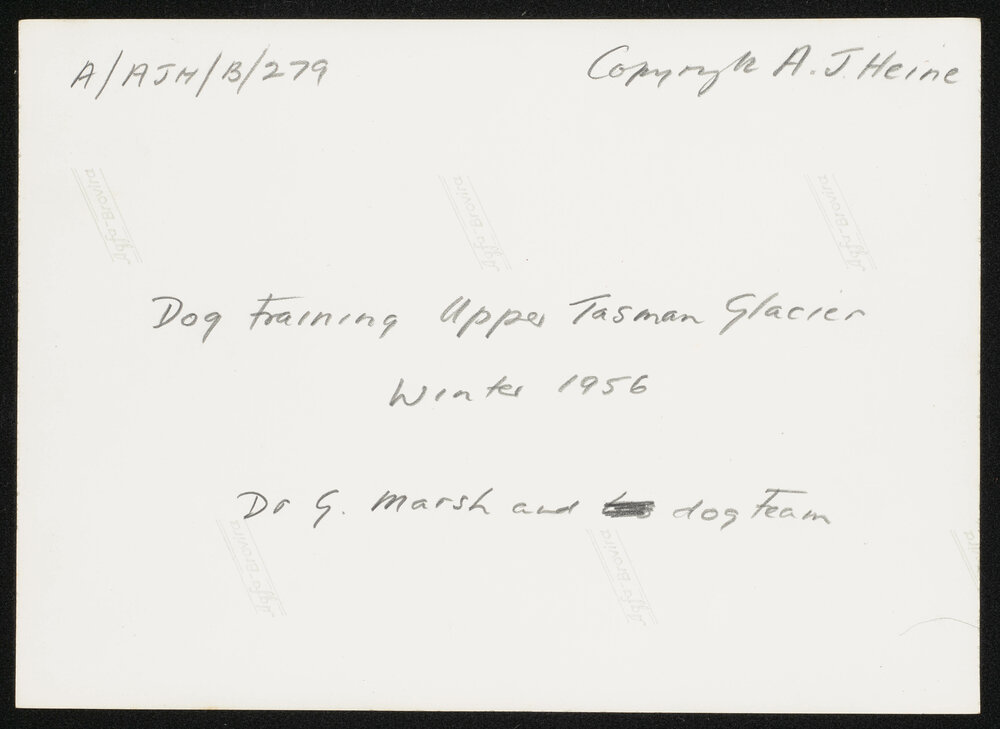 A/AJH/B/279
Copyright A. J. Heine
Agfa-Brovira
Agfa-Brovira
Agfa-Brovira
Dog Training Upper Tasman Glacier
Winter 1956
Dr G. Marsh and dog team
Agfa-Brovira
Agfa-Brovira